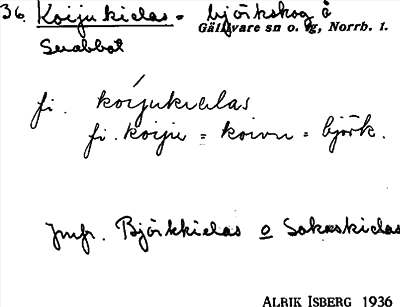 36. Koijukielas - björkskog å
Gällivare sn o. tg, Norrb. l.
Snabbot
fi. koijukielas
fi. koiju = koivu = björk.
Jmfr. Björkkielas o Sakaskielas
ALRIK ISBERG 1936